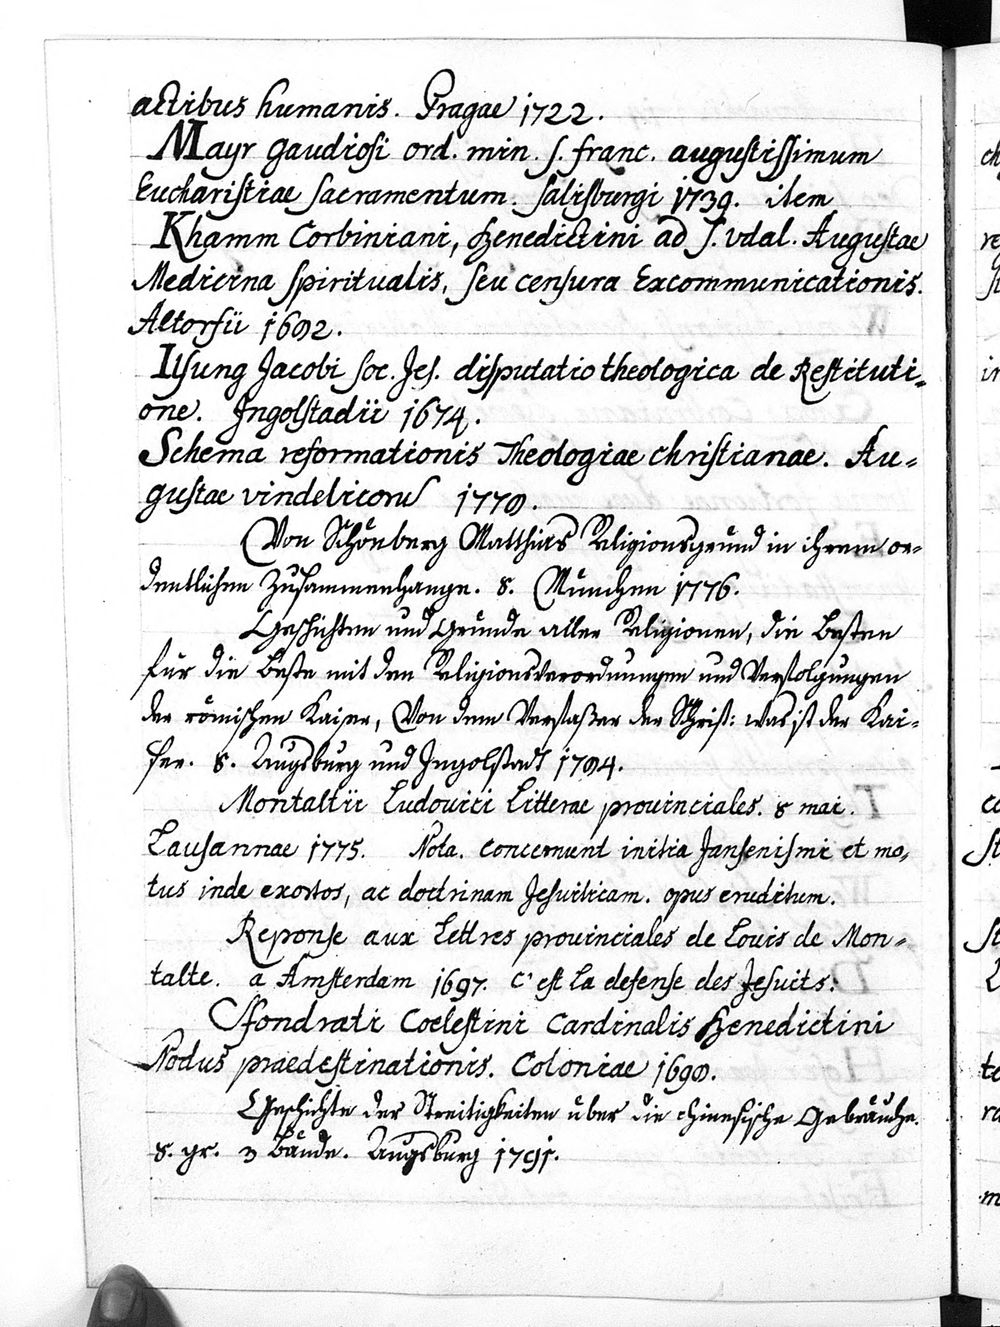 actibus humanis. Pragae 1722.
Mayr Gaudiosi ord. min. S. Franc. augustissimum
Eucharistiae Sacramentum. Salisburgi 1739. item
Khamm Corbiniani, Benedictini ad S. Udal. Augustae
Medicina Spiritualis, seu censura Excommunicationis.
Altorfii
Ilsung Jacobi Soc. Jes. disputatio theologica de Restituti-
one. Ingolstadii 1674.
Schema reformationis Theologiae christianae. Au-
gustae vindelicoru
Von Schönberg Matthias Religionsgründ in ihrem or-
dentlichen Zusammenhange. 8. München 1776.
Geschichten und Gründe aller Religionen, die Besten
für die Beste mit den Religionsverordnungen und Verfolgungen
der römischen Kaiser, Von dem Verfaßer der Schrift: was ist der Kai-
ser. 8. Augsburg und Ingolstadt 1794.
Montaltii Ludovici Litterae provinciales. 8 mai.
Lausannae 1775. Nota. concernunt initia Jansenismi et mo-
tus inde exortos, ac doctrinam Jesuiticam. opus eruditum.
Reponse aux Lettres provinciales de Louis de Mon-
talte. a Amsterdam 1697. C'est la defense des Jesuits.
Sfondrati Coelestini Cardinalis Benedictini
Nodus praedestinationis. Coloniae
Geschichte der Streitigkeiten über die chinesische Gebräuche.
8. gr. 3 Bände. Augsburg 1791.